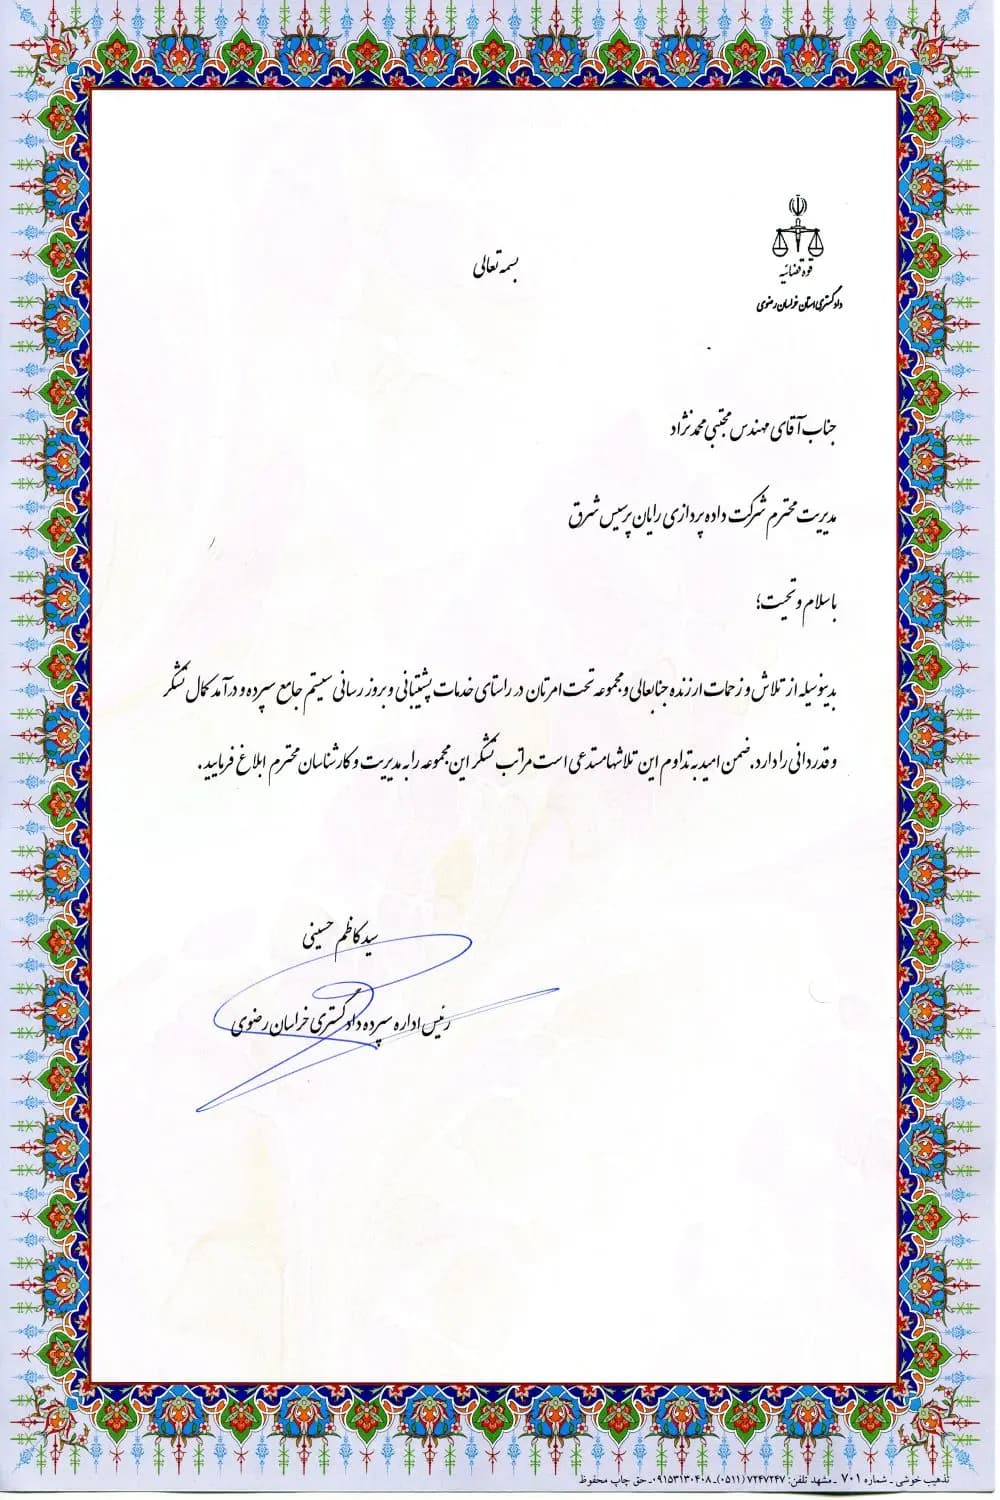 قوه قضائیه
دادگستری استان خراسان رضوی
بسمه تعالی
جناب آقای مهندس مجتبی محمدنژاد
مدیریت محترم شرکت داده پردازی رایان پرسیس شرق
با سلام و تحیت؛
بدینوسیله از تلاش و زحمات ارزنده جنابعالی و مجموعه تحت امرتان در راستای خدمات پشتیبانی و بروز رسانی سیستم جامع سپرده و درآمد کمال تشکر
و قدردانی را دارد. ضمن امید به تداوم این تلاشها مستدعی است مراتب تشکر این مجموعه را به مدیریت و کارشناسان محترم ابلاغ فرمایید.
سید کاظم حسینی
رئیس اداره سپرده دادگستری خراسان رضوی
تذهیب خوشی ـ شماره ۷۰۱ ـ مشهد تلفن: ۷۲۴۷۲۴۷ (۰۵۱۱)ـ۰۹۱۵۳۱۳۰۴۰۸ـ حق چاپ محفوظ